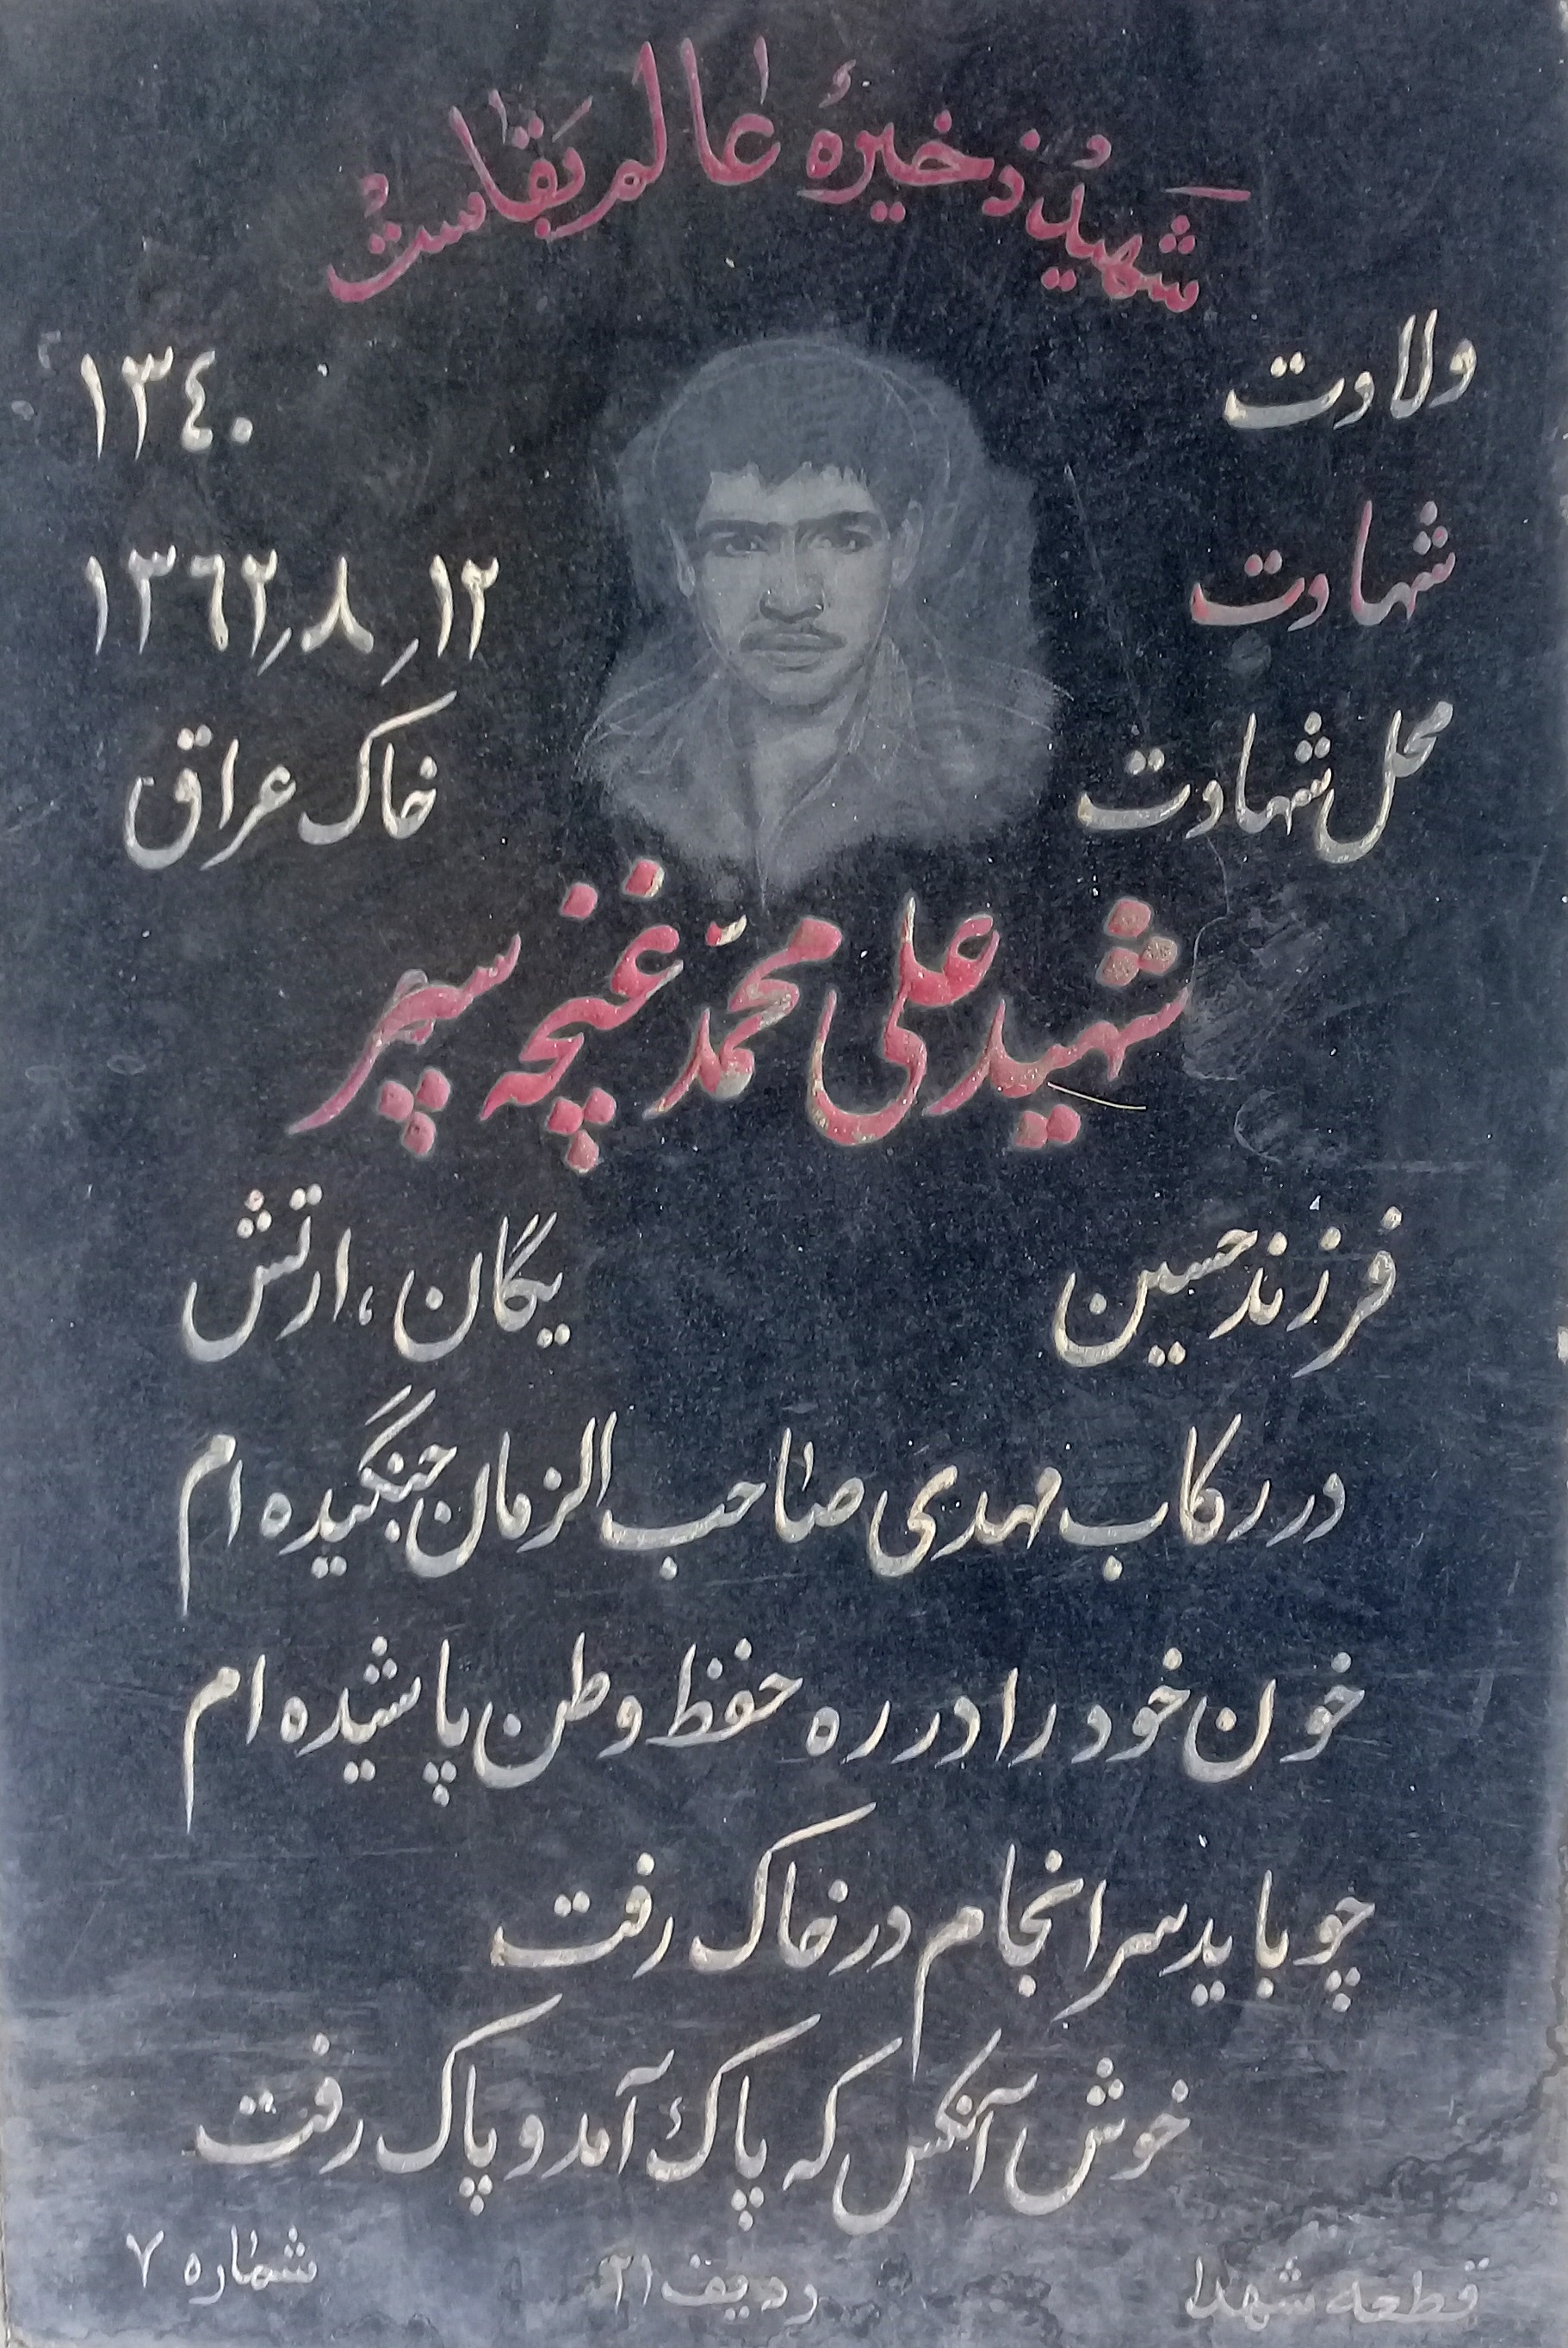 شهید ذخیرهٔ عالم بقاست
ولادت ١٣٤٠
شهادت ١٢ر٨ر١٣٦٢
محل شهادت خاک عراق
شهید علی محمّد غنچه سپهر
فرزند حسین یگان، ارتش
در رکاب مهدی صاحب الزمان جنگیده ام
خون خود را در ره حفظ وطن پاشیده ام
چو باید سرانجام در خاک رفت
خوش آنکس که پاک آمد و پاک رفت
قطعه شهدا ردیف ٢١ شماره ٧